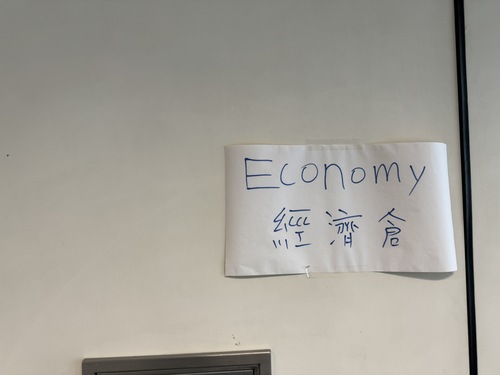 Economy
經濟倉